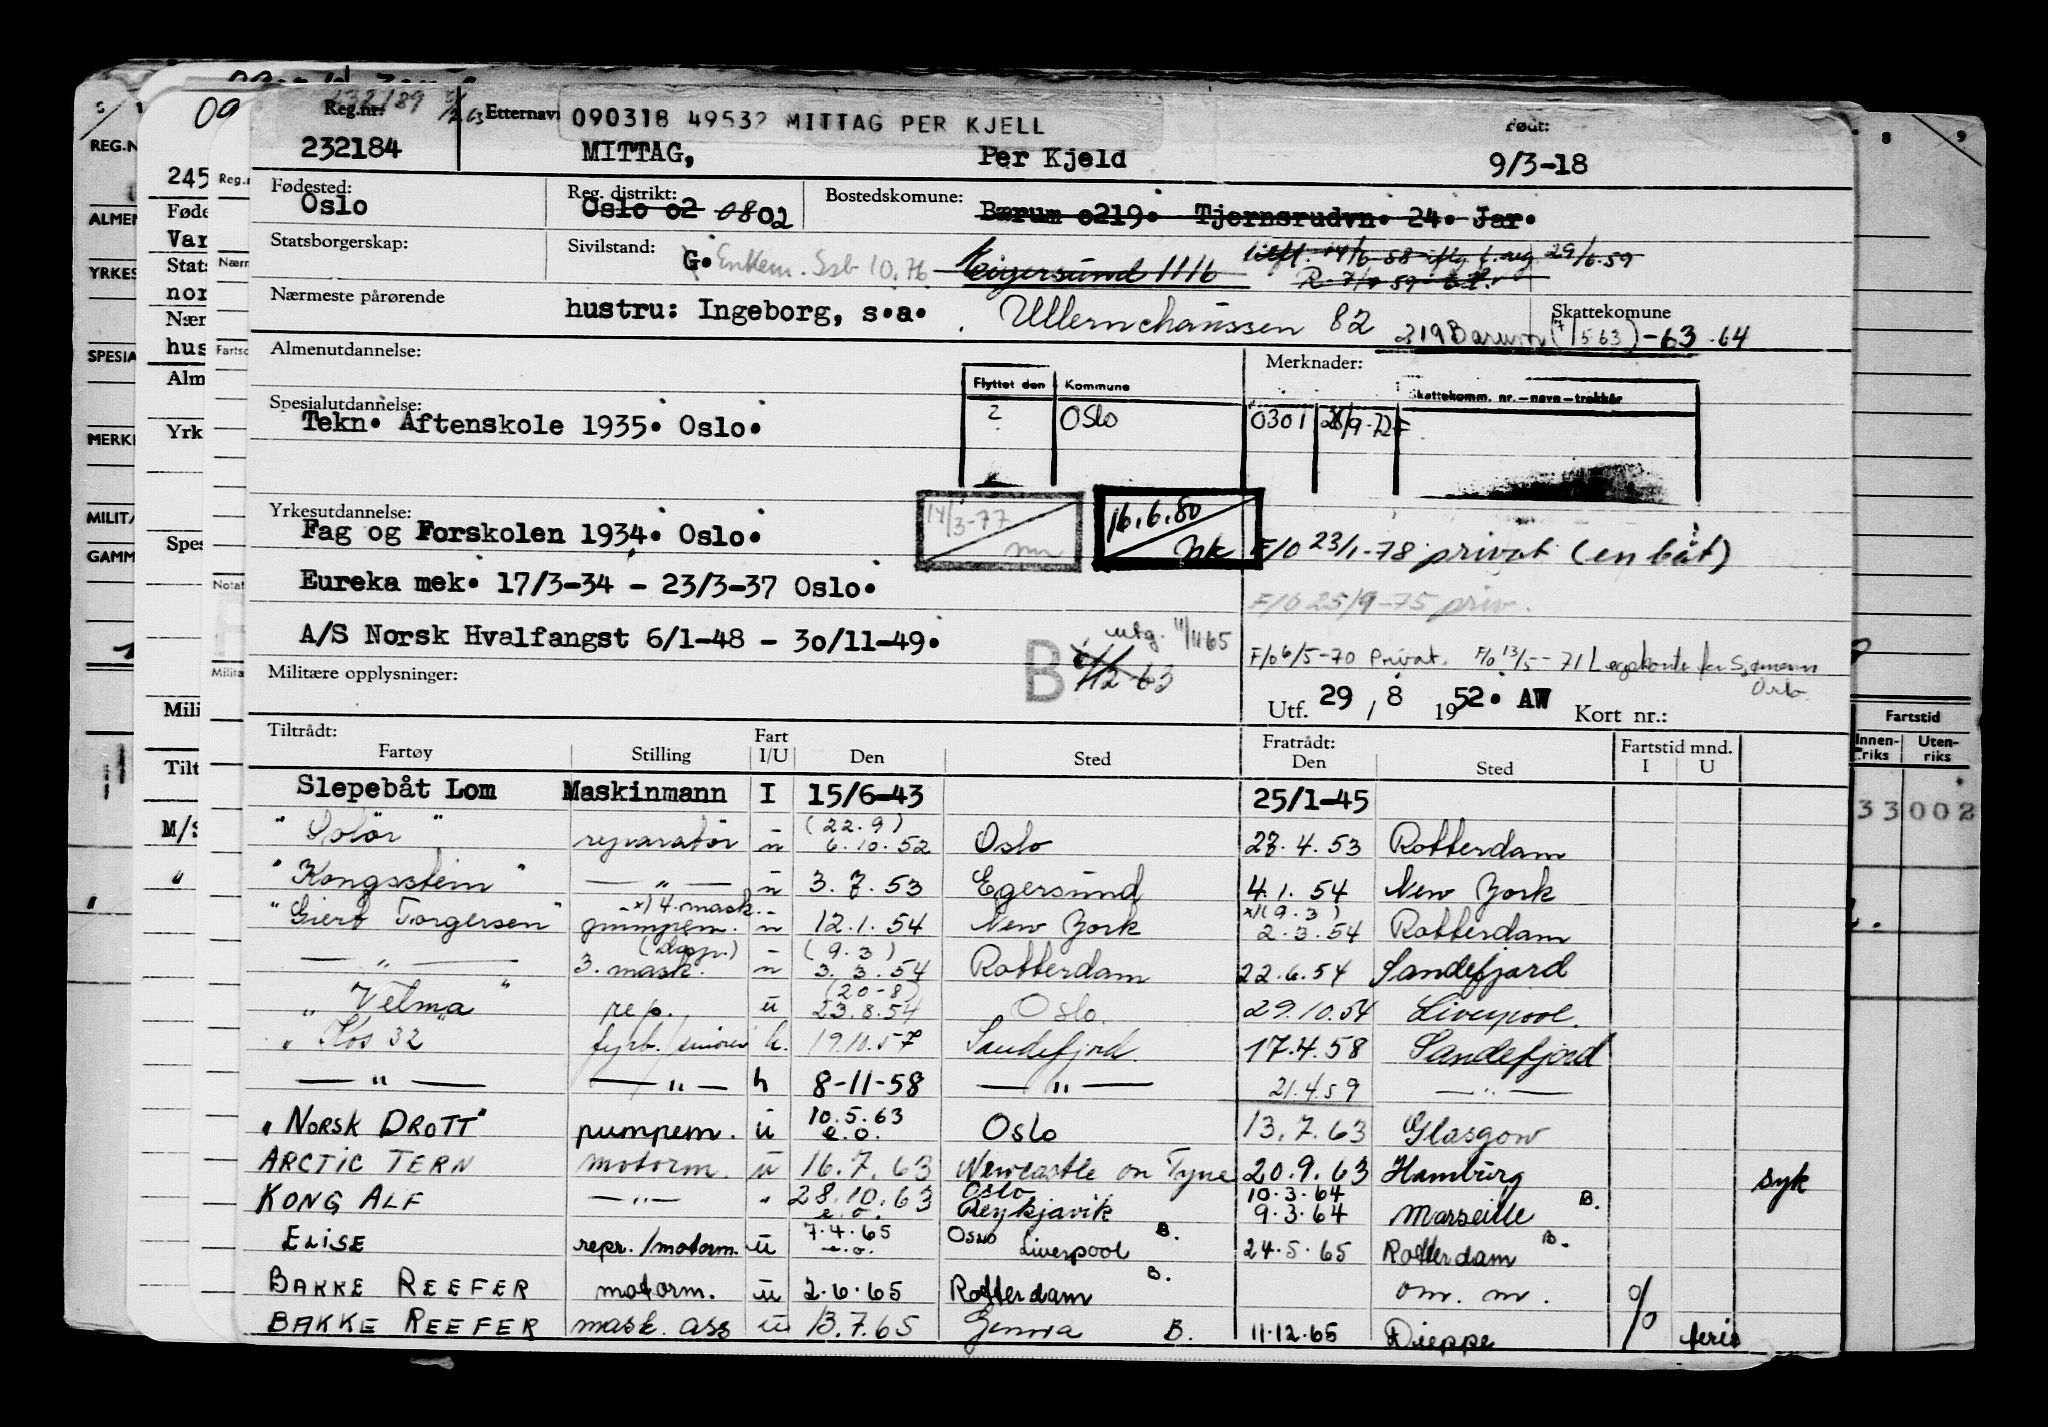 232189
Reg.nr: Etternavn 090318 49532 MITTAG PER KJELL Født:
232184 MITTAG, Per Kjeld 9/3-18
Fødested: Reg. distrikt: Bostedskomune:
Oslo Oslo o2 0802 Bærum o219. Tjernsrudvn. 24. Jar.
Statsborgerskap: Sivilstand: G. Enkem. Ssb 10.76 Eigersund 1116 29/6.59
Nærmeste pårørende hustru: Ingeborg, s.a. Ullernchaussen 82 Skattekomune
219 Bærum (7/5 63) -63 -64
Almenutdannelse: Merknader:
Flyttet den Kommune Skattekomm. nr.-navn-trekkår
Spesialutdannelse:
Tekn. Aftenskole 1935. Oslo. 2 Oslo 0301
Yrkesutdannelse: 14/3-77 16.6.80
Fag og Forskolen 1934. Oslo. F/O 23/1-78 privat (en båt)
Eureka mek. 17/3-34 - 23/3-37 Oslo. F/O 25/9-75 priv.
A/S Norsk Hvalfangst 6/1-48 - 30/11-49. utg. 11/11 65
B F/O 6/5-70 Privat. F/O 13/5-71
Militære opplysninger:
Utf. 29 / 8 1952. AW Kort nr.:
Tiltrådt: Fart Fratrådt: Fartstid mnd.
Fartøy Stilling I/U Den Sted Den Sted I U
Slepebåt Lom Maskinmann I 15/6-43 25/1-45
"Solör" reparatör u (22.9) 6.10.52 Oslo 23.4.53 Rotterdam
"Kongsstein" — " — u 3.7.53 Egersund 4.1.54 New York
"Giert Torgersen" x) 4. mask. pumpem. u 12.1.54 New York x) (9.3) 2.3.54 Rotterdam
— " — (disp.) 3. mask. u (9.3) 3.3.54 Rotterdam 22.6.54 Sandefjord
"Velma" rep. u (20-8) 23.8.54 Oslo. 29.10.54 Liverpool.
"Kos 32" fyrb./smörer h. 19.10.57 Sandefjord. 17.4.58 Sandefjord
— " — — " — h 8-11-58 — " — 21.4.59 — " —
"NORSK DROTT" pumpem. u 10.5.63 e.o. Oslo 13.7.63 Glasgow
ARCTIC TERN motorm. u 16.7.63 Newcastle on Tyne 20.9.63 Hamburg syk
KONG ALF — " — " 28.10.63 e.o. Oslo Reykjavik 10.3.64 9.3.64 Marseille B.
ELISE repr./motorm. u 7.4.65 e.o. Oslo Liverpool B. 24.5.65 Rotterdam B.
BAKKE REEFER motorm. u 2.6.65 Rotterdam B. om. m.
BAKKE REEFER mask. ass u 13.7.65 Genova B. 11.12.65 Dieppe % ferie
REG.N
ALMEN
YRKES
SPESIA
MERK
MILIT
GAMM
245
Føde
Var
Stats
nor
Nær
hus
Alm
Yrk
Spes
Mili
Tilt
M/S
Reg.n
Nærm
Fartsc
Notat
Milita
8 9
Fartstid
Innen-riks Uten-riks
33 002